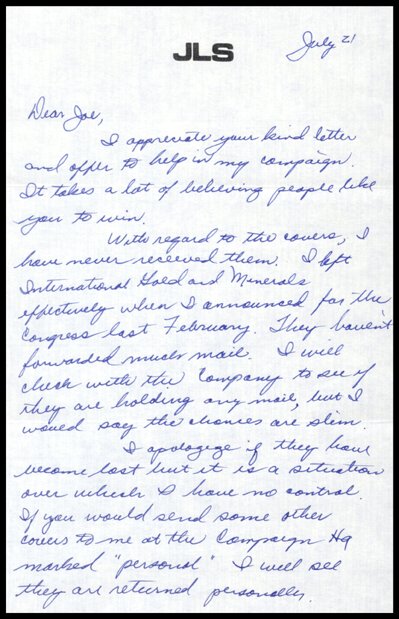 JLS
July 21
Dear Joe,
I appreciate your kind letter
and offer to help in my campaign.
It takes a lot of believing people like
you to win.
With regard to the covers, I
have never received them. I left
International Gold and Minerals
effectively when I announced for the
Congress last February. They haven't
forwarded much mail. I will
check with the Company to see if
they are holding any mail, but I
would say the chances are slim.
I apologize if they have
become lost but it is a situation
over which I have no control.
If you would send some other
covers to me at the Campaign Hq
marked "personal" I will see
they are returned personally.